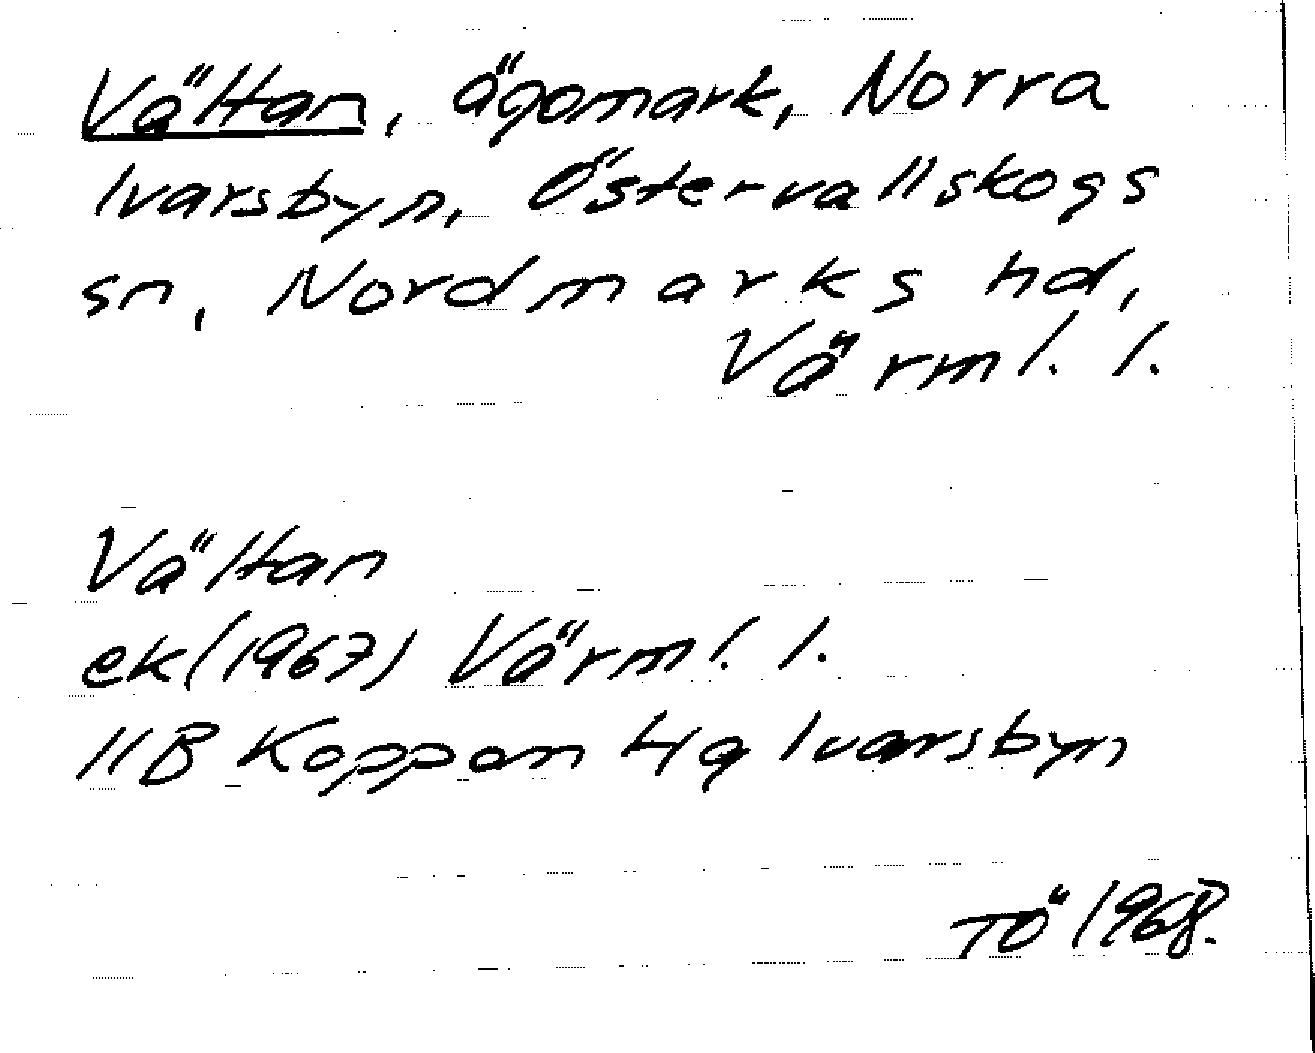 Vältan, ägomark, Norra
Ivarsbyn, Östervallskogs
sn, Nordmarks hd,
Värml. l.
Vältan
ek (1967) Värml. l.
11B Koppom 4a Ivarsbyn
TÖ 1968.